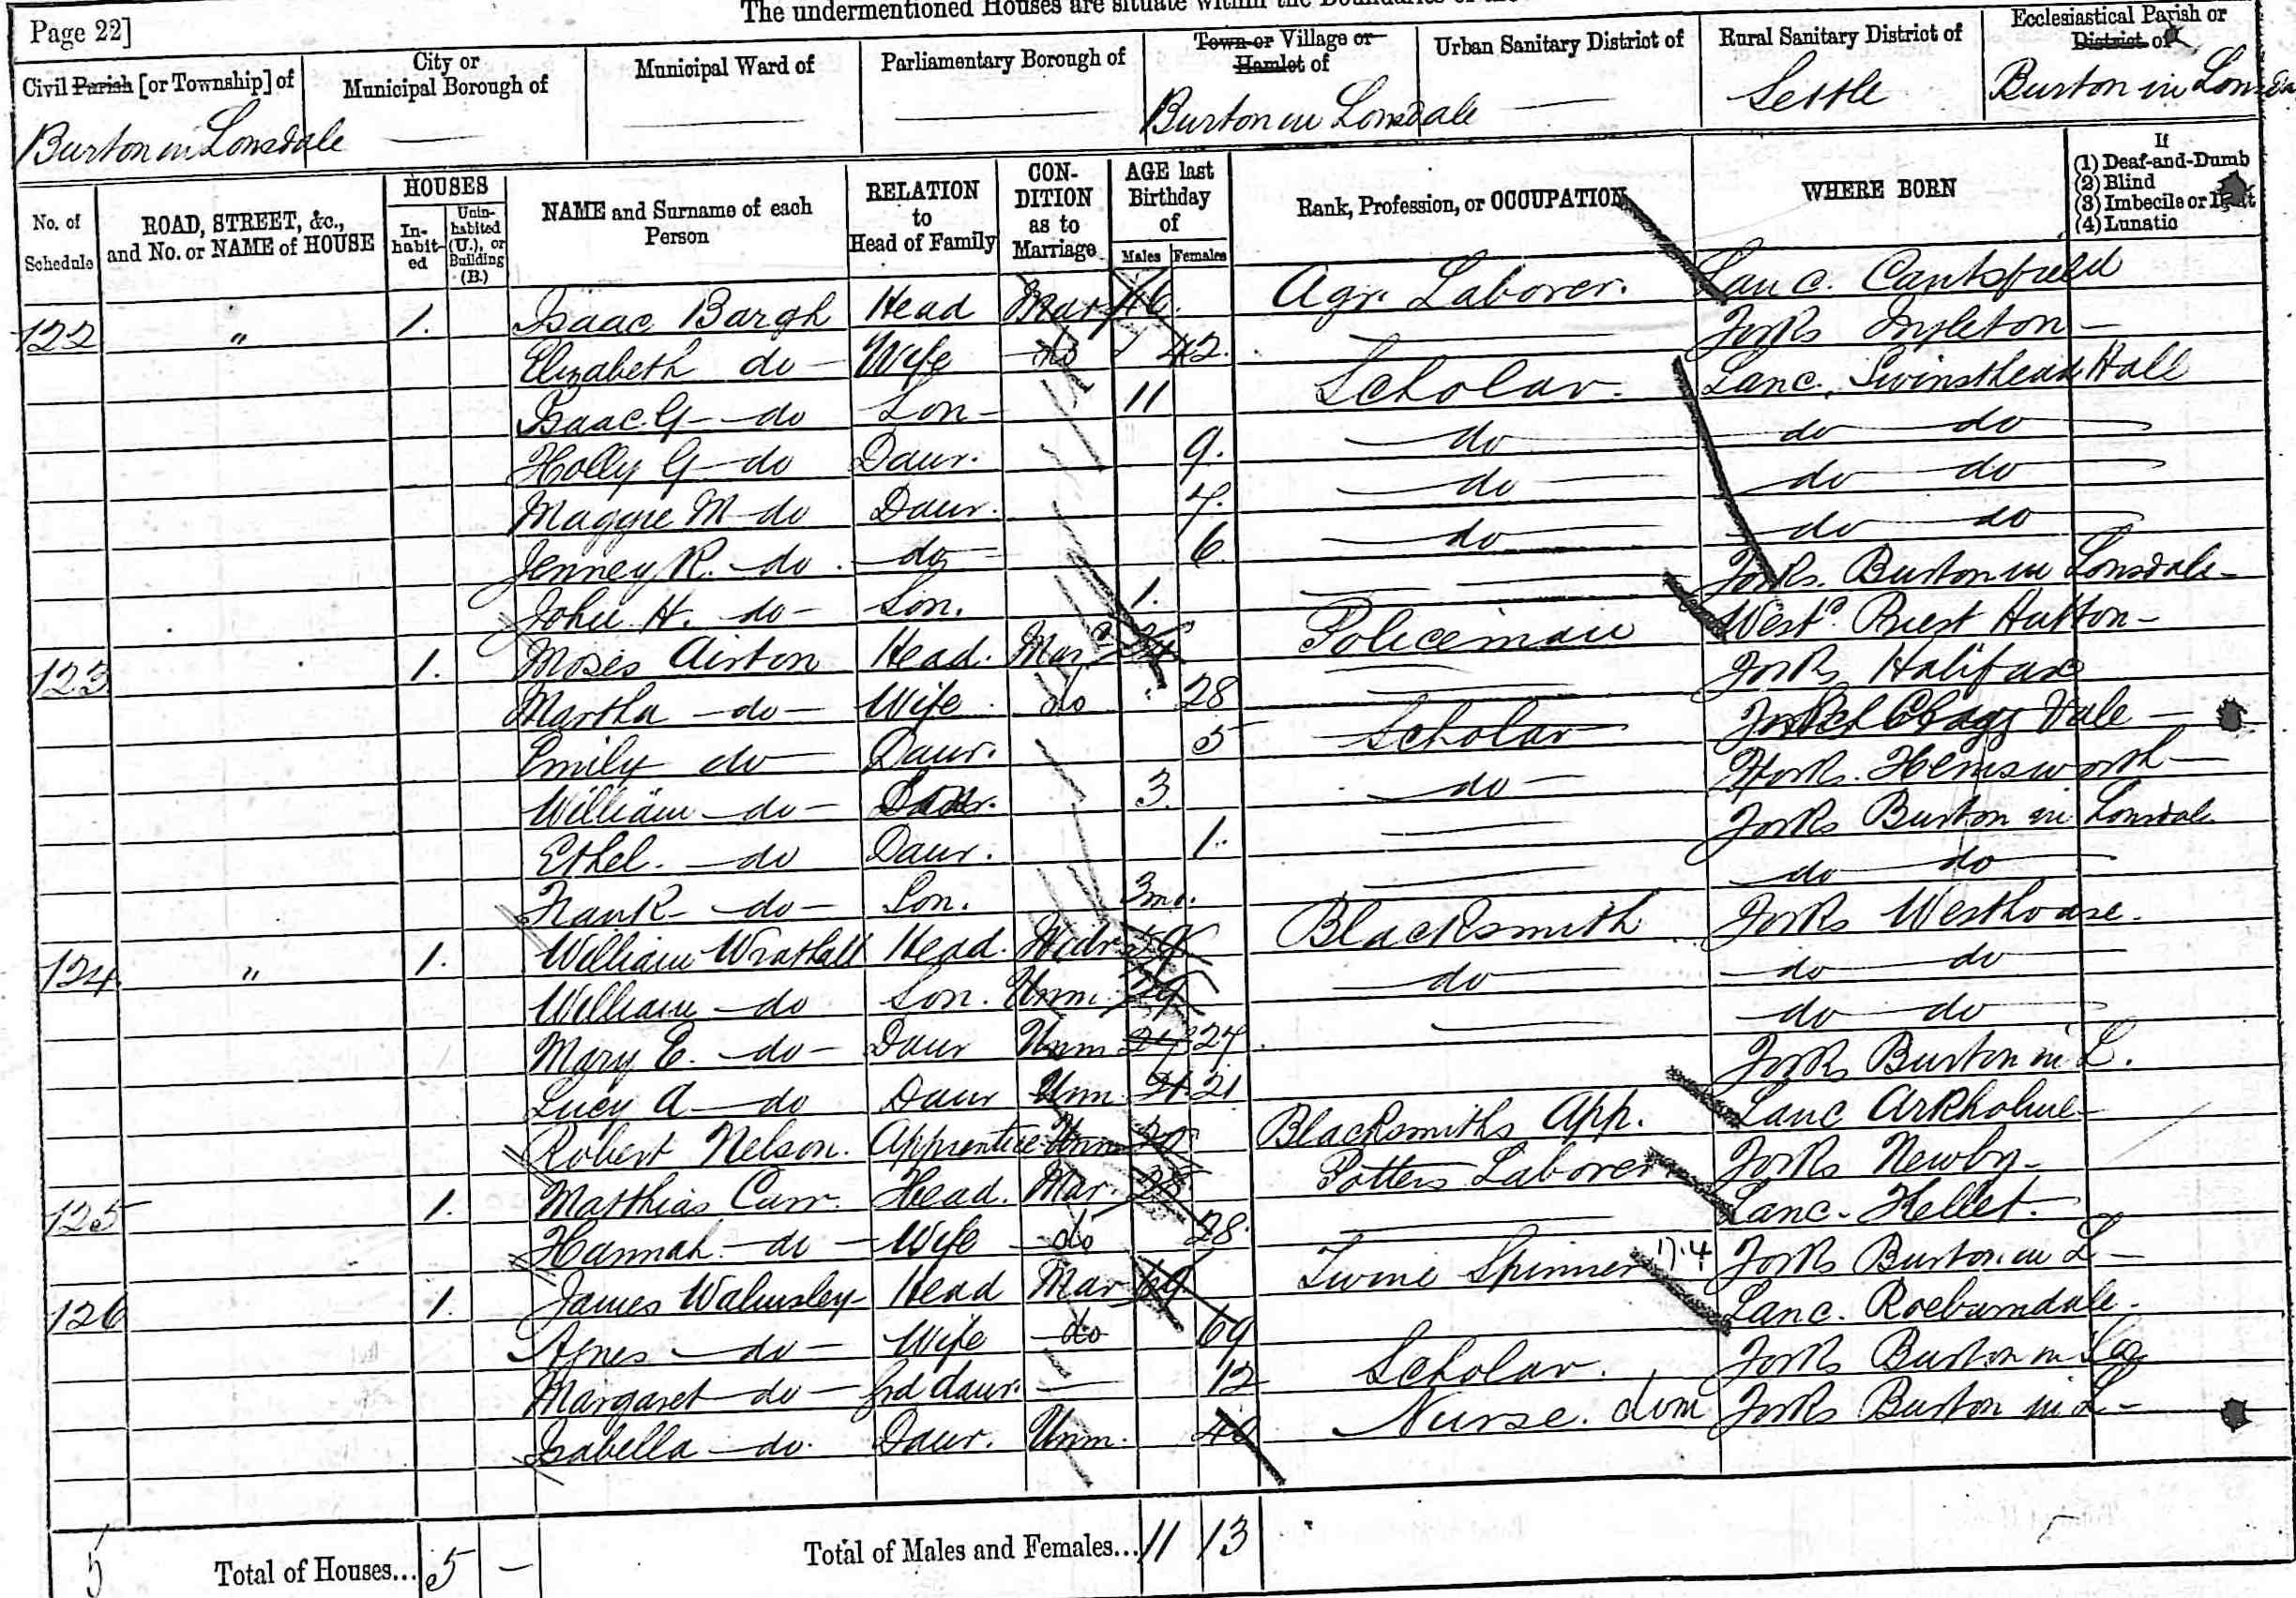 The undermentioned Houses are situate within the Boundaries of the
Page 22]
Civil Parish [or Township] of
City or Municipal Borough of
Municipal Ward of
Parliamentary Borough of
Town or Village or Hamlet of
Urban Sanitary District of
Rural Sanitary District of
Ecclesiastical Parish or District of
Burton in Lonsdale — — — Burton in Lonsdale — Settle Burton in Lonsdale
No. of Schedule
ROAD, STREET, &c., and No. or NAME of HOUSE
HOUSES
Inhabited
Uninhabited (U.), or Building (B.)
NAME and Surname of each Person
RELATION to Head of Family
CONDITION as to Marriage
AGE last Birthday of
Males Females
Rank, Profession, or OCCUPATION
WHERE BORN
If
(1) Deaf-and-Dumb
(2) Blind
(3) Imbecile or Idiot
(4) Lunatic
122 " 1. Isaac Bargh Head Mar 46. Agr. Laborer. Lanc. Cantsfield
Elizabeth do Wife do 42. — Yorks Ingleton
Isaac G do Son 11 Scholar. Lanc. Swinsthead Hall
Holly G do Daur. 9. do do do
Maggie M do Daur. 7. do do do
Jenney R. do do 6 do do do
John H. do Son. 1. — Yorks. Burton in Lonsdale
123 1. Moses Airton Head. Mar Policeman West. Prest Hutton
Martha do Wife do 28 — Yorks Halifax
Emily do Daur. 5 Scholar Cragg Vale
William do Son 3. do Yorks. Hemsworth
Ethel. do Daur. 1. — Yorks Burton in Lonsdale
Frank do Son. 3mo. — do do
124. " 1. William Wrathall Head. Widr 59 Blacksmith Yorks Westhouse.
William do Son. Unm. 29 do do do
Mary E. do Daur Unm 27 27. — do do
Lucy A do Daur Unm 21. 21 Yorks Burton in L.
Robert Nelson. Apprentice Unm 20 Blacksmiths App. Lanc Arkholme
125 1. Matthias Carr. Head. Mar. 28 Potters Laborer Yorks Newby
Hannah do Wife do 28. — Lanc. Kellet.
126 1. James Walmsley Head Mar 69 Twine Spinner 17.4 Yorks Burton in L
Agnes do Wife do 69 Lanc. Roeburndale.
Margaret do Grd daur. — 12 Scholar. Yorks Burton in
Isabella do. Daur. Unm. 40 Nurse. dom Yorks Burton in L
5 Total of Houses... 5 — Total of Males and Females... 11 13